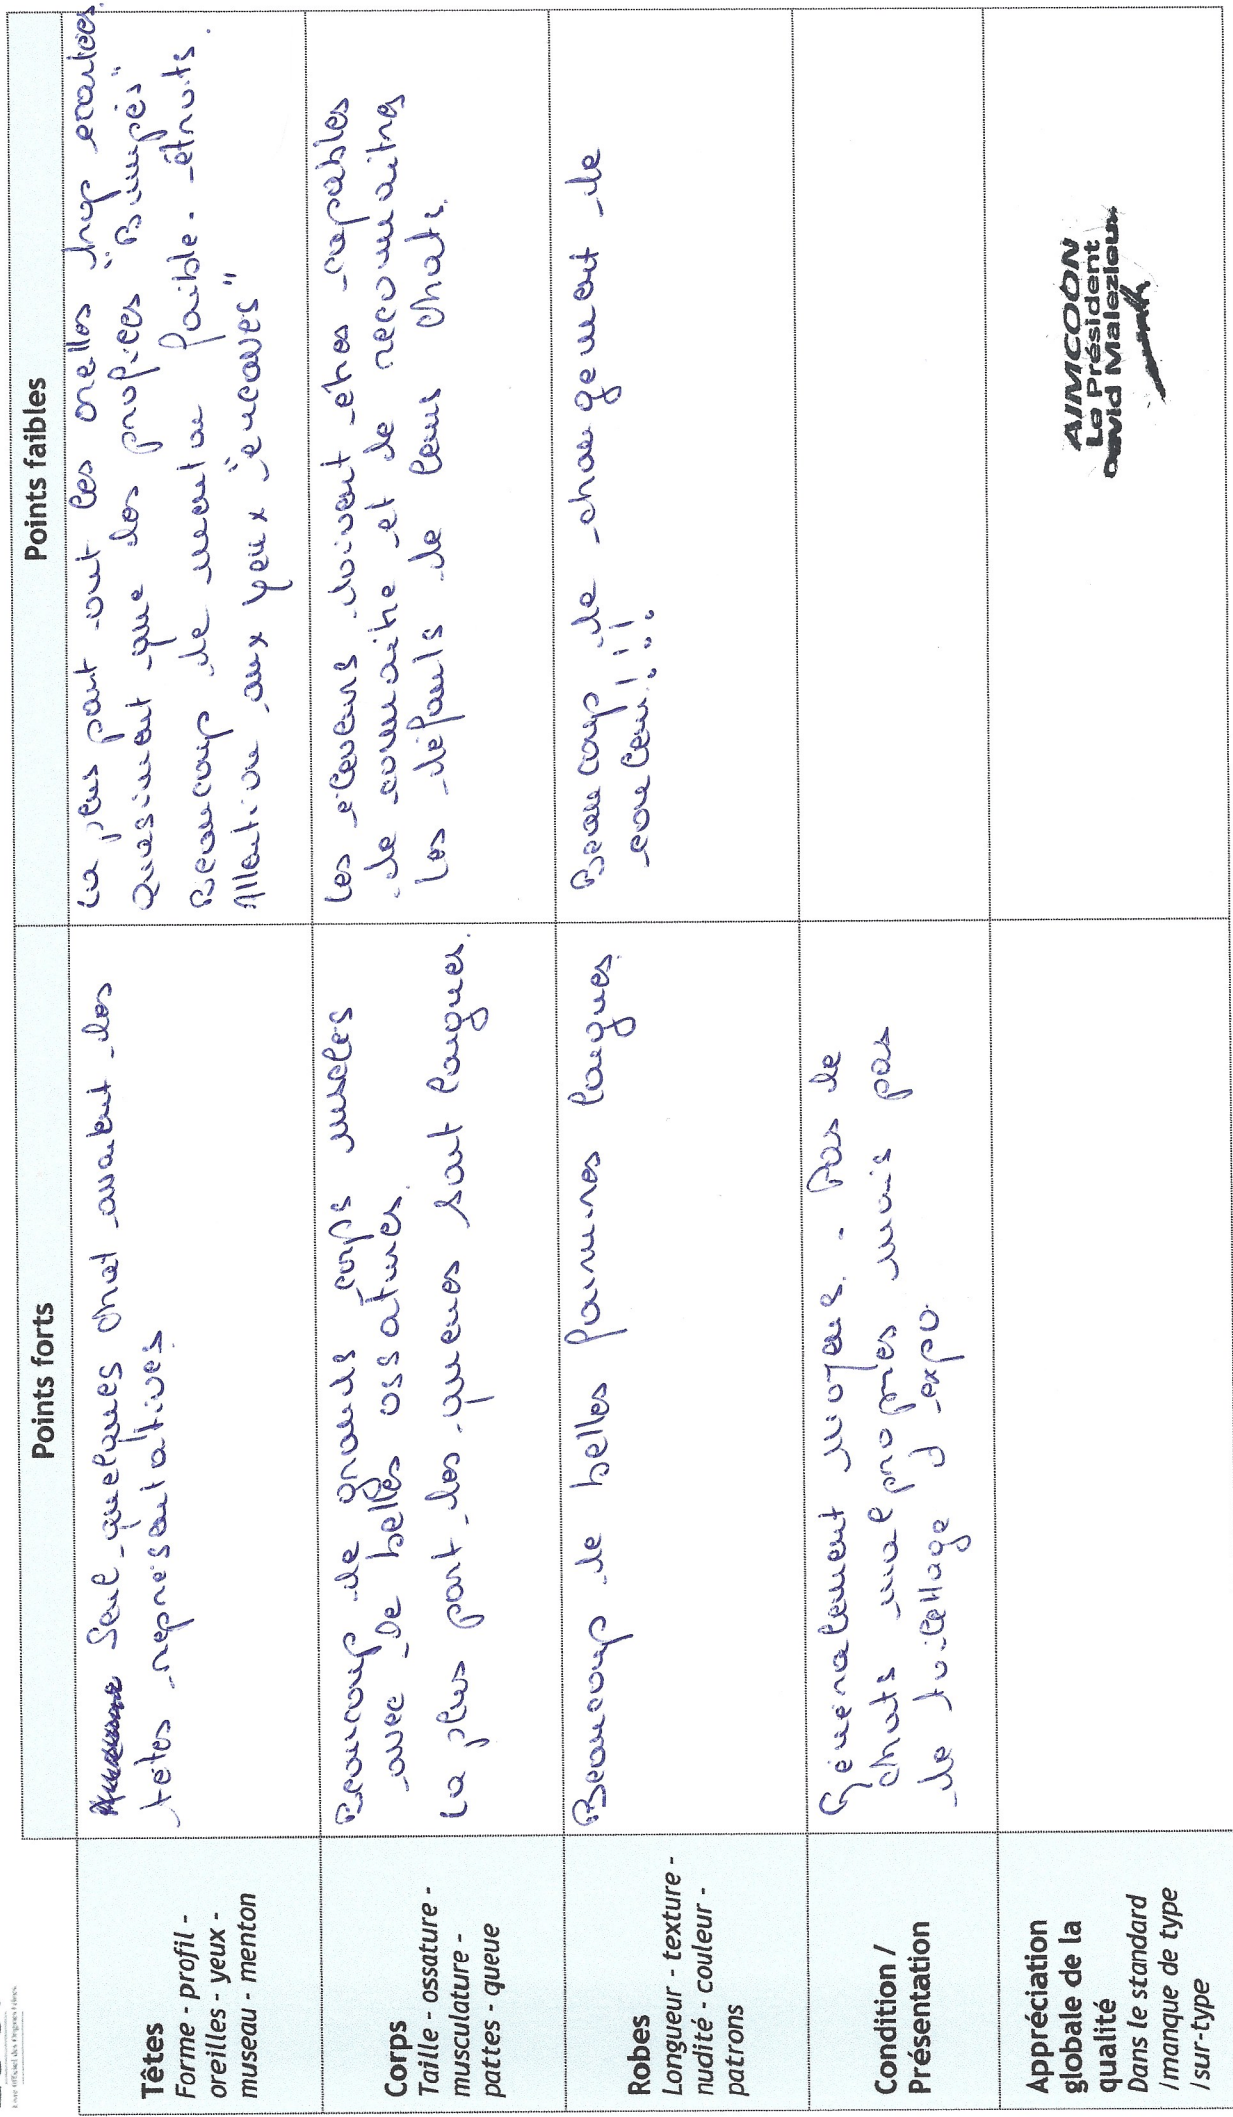 Livre Officiel des Origines Félines
Points forts
Points faibles
Têtes
Forme - profil -
oreilles - yeux -
museau - menton
Seul quelques chat avaient des
têtes representatives
La plus part ont les oreilles trop ecartées.
Quasiment que des profiles "Bumpés"
Beaucoup de menton faible - étroits.
Attention aux yeux "encavés"
Corps
Taille - ossature -
musculature -
pattes - queue
Beaucoup de grands corps muscles
avec de belles ossatures.
La plus part des queues sont longues.
Les eleveurs doivent etres capables
de connaitre et de reconnaitres
les défauts de leurs chats.
Robes
Longueur - texture -
nudité - couleur -
patrons
Beaucoup de belles fourrures longues.
Beaucoup de changement de
couleur!!!
Condition /
Présentation
Géneralement moyens. - Pas de
chats mal propres mais pas
de toilettage d'expo.
Appréciation
globale de la
qualité
Dans le standard
/manque de type
/sur-type
AIMCOON
Le Président
David Malezieux